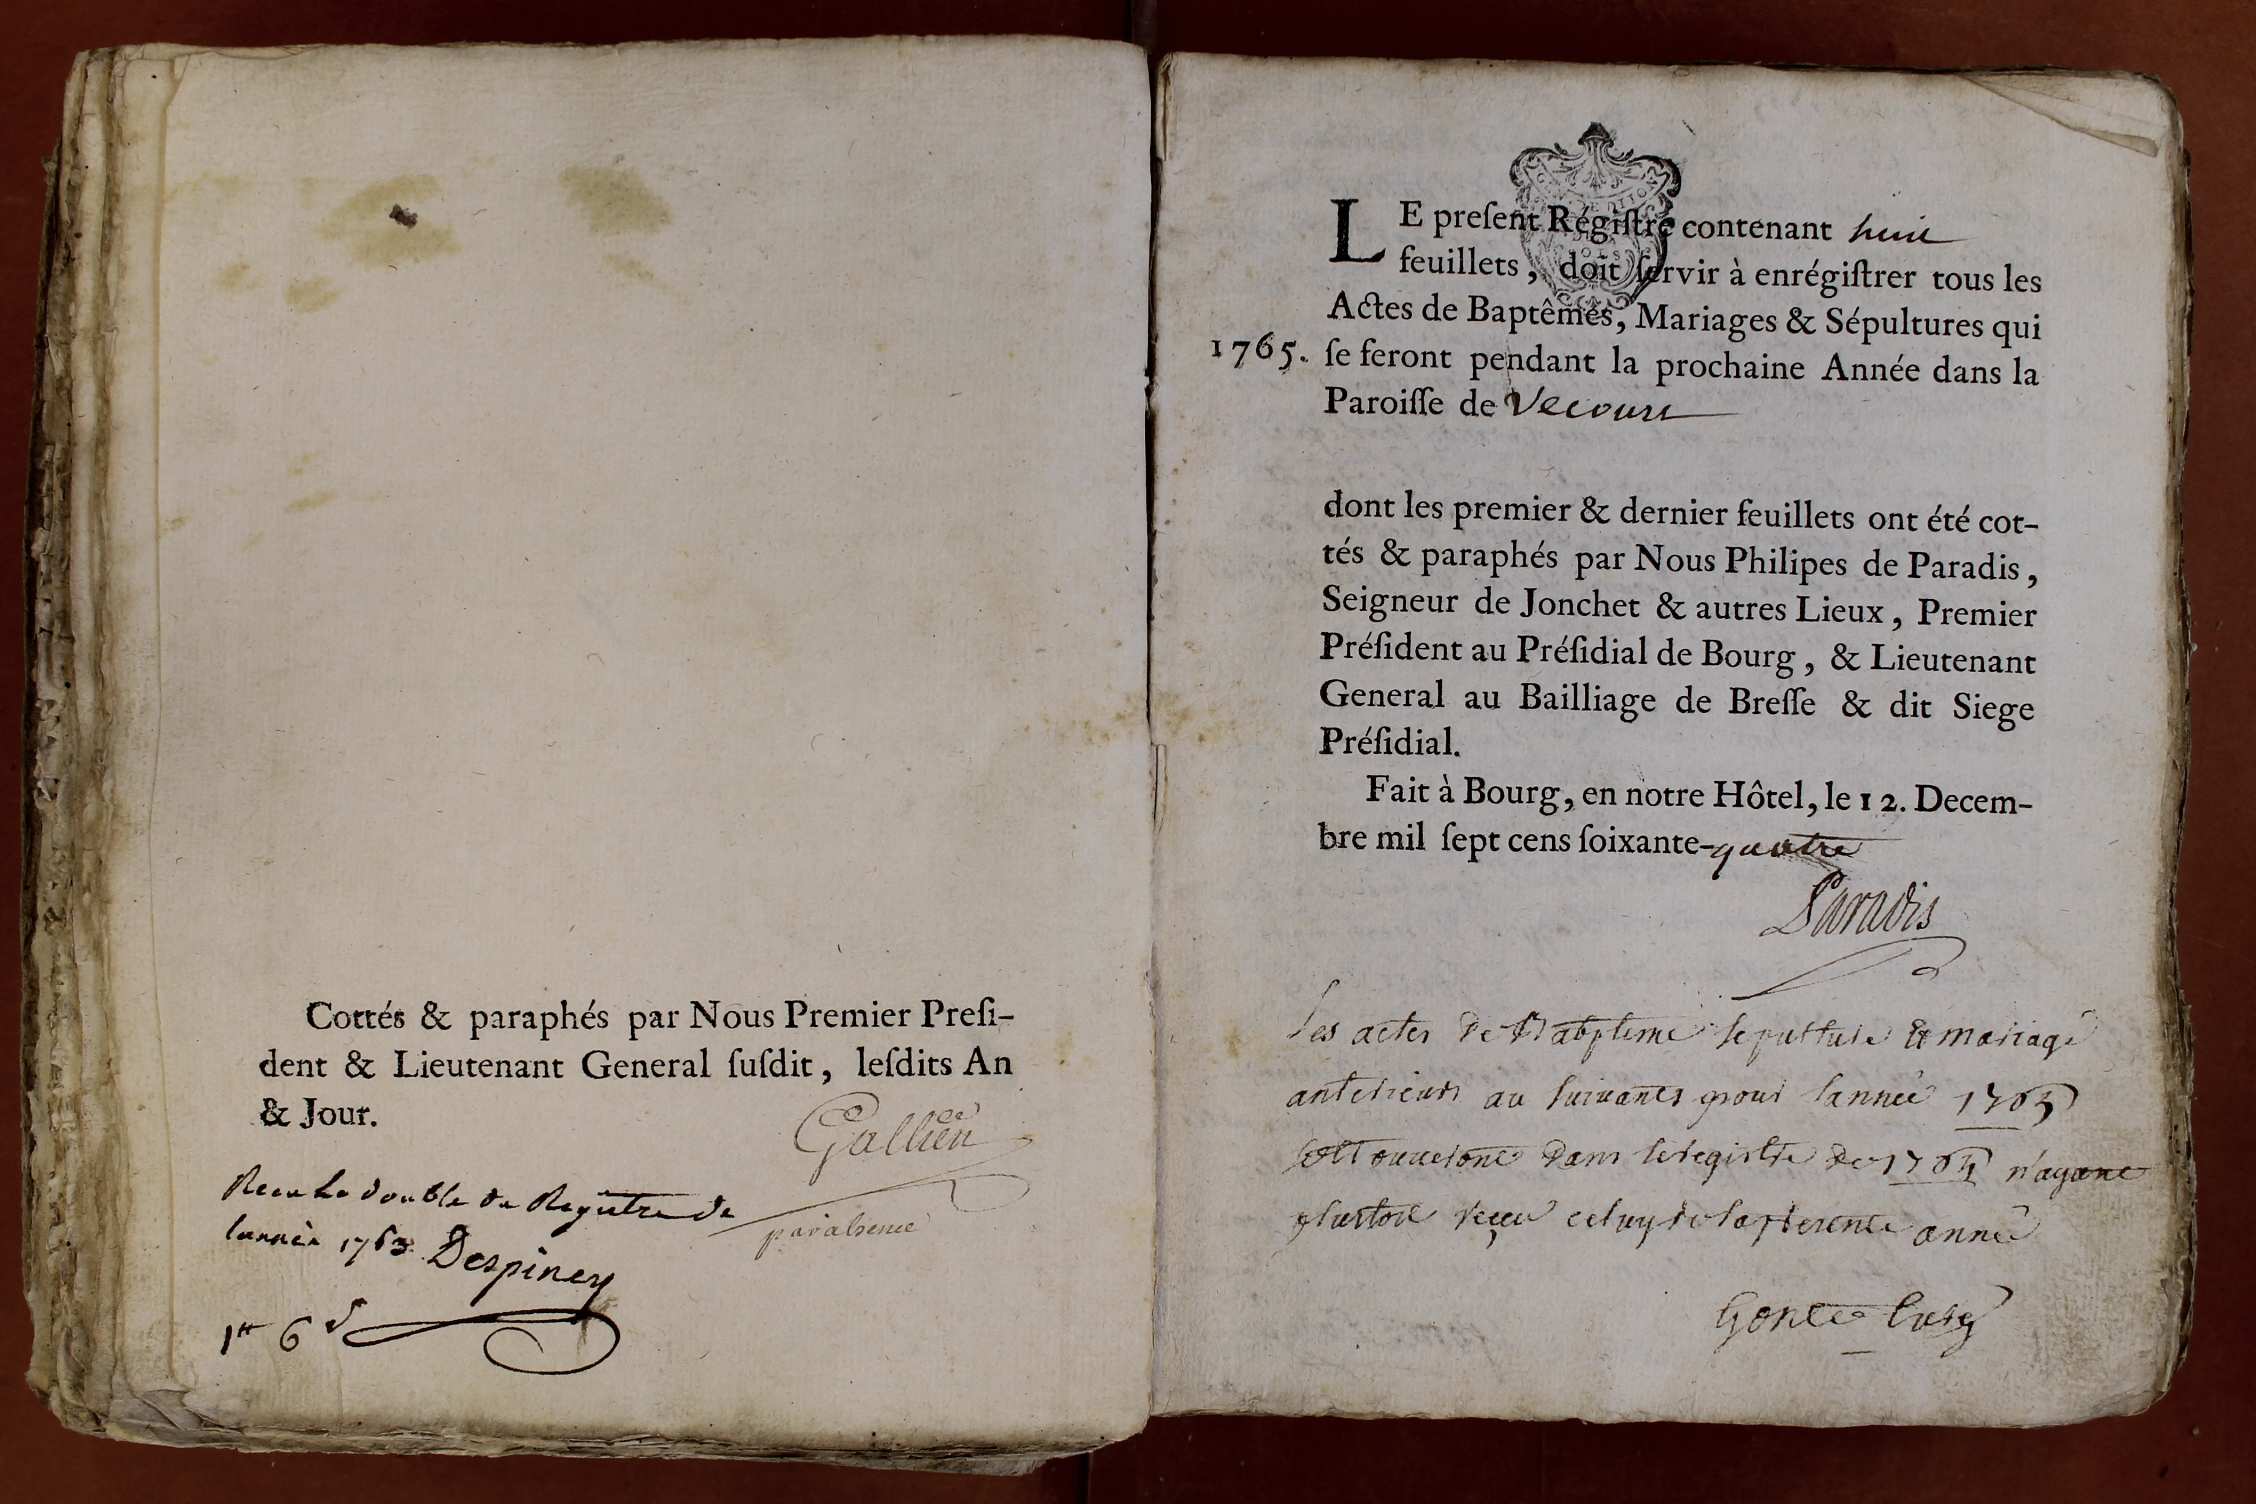 Cottés & paraphés par Nous Premier Preſi-
dent & Lieutenant General ſuſdit, leſdits An
& Jour.
Gallien
par absence
Receu Le double du Registre de
lannée 1763 Despiney
1ᵗᵗ 6ᵈ
LE preſent Régiſtre contenant huit
feuillets, doit ſervir à enrégiſtrer tous les
Actes de Baptêmes, Mariages & Sépultures qui
1765. ſe feront pendant la prochaine Année dans la
Paroiſſe de Vecourt
dont les premier & dernier feuillets ont été cot-
tés & paraphés par Nous Philipes de Paradis,
Seigneur de Jonchet & autres Lieux, Premier
Préſident au Préſidial de Bourg, & Lieutenant
General au Bailliage de Breſſe & dit Siege
Préſidial.
Fait à Bourg, en notre Hôtel, le 12. Decem-
bre mil ſept cens ſoixante-quatre
Paradis
Les actes de Babpteme sepulture Et mariage
anterieurs au suivants pour lannée 1765
se trouveront dans le registre de 1764 n'ayant
plustot reçu celuy de la presente année
Gonet Curé